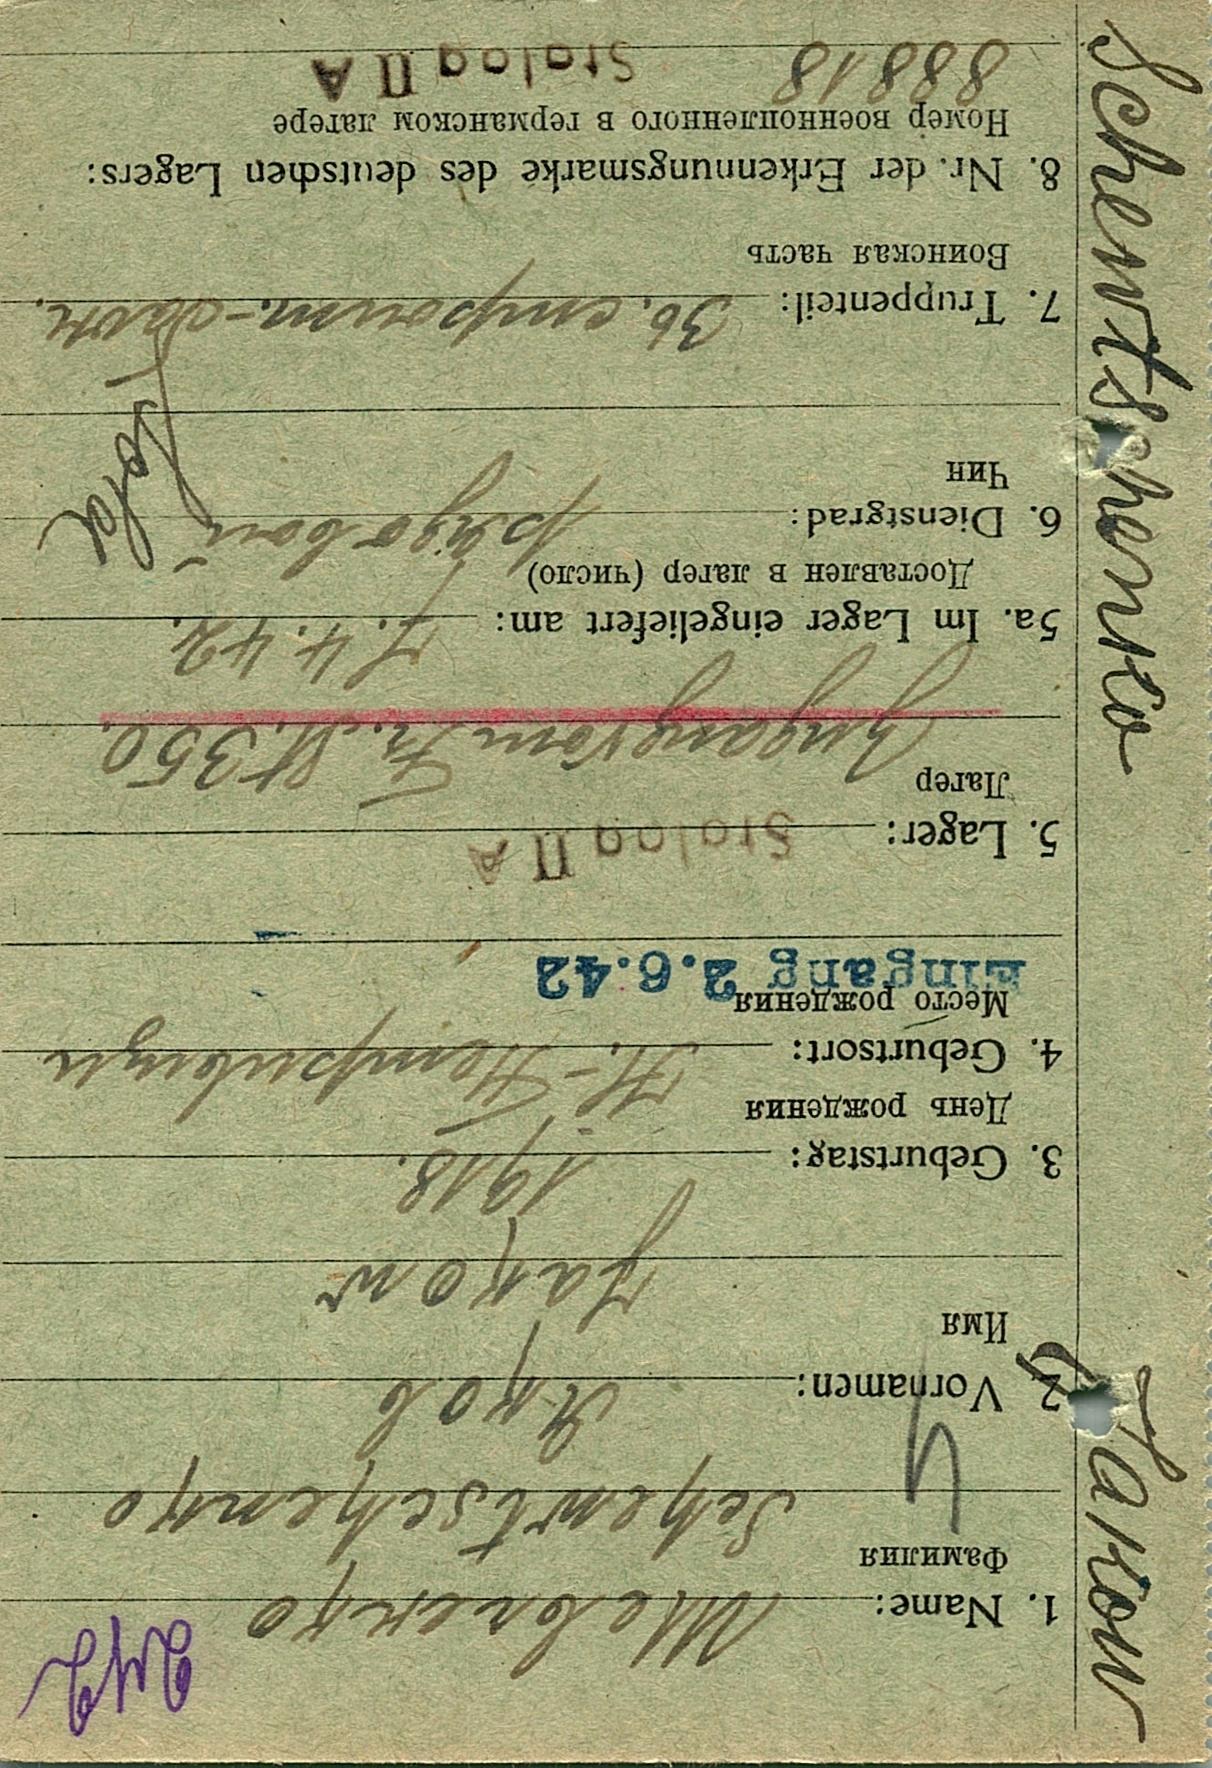 1. Name: Шевченко
Фамилия
Schewtschenko
2. Vornamen: Яков
Имя
Jakow
3. Geburtstag: 1918.
День рождения
4. Geburtsort:
Место рождения
Eingang 2.6.42
5. Lager: Stalag II A
Лагер
Zugang vom Fr. St. 350.
5a. Im Lager eingeliefert am: 7.4.42.
Доставлен в лагер (число)
6. Dienstgrad: рядовой
Чин
Sold
7. Truppenteil: 36. строит.-бат.
Воинская часть
8. Nr. der Erkennungsmarke des deutschen Lagers:
Номер военнопленного в германском лагере
88818 Stalag II A
Schewtschenko Jakow